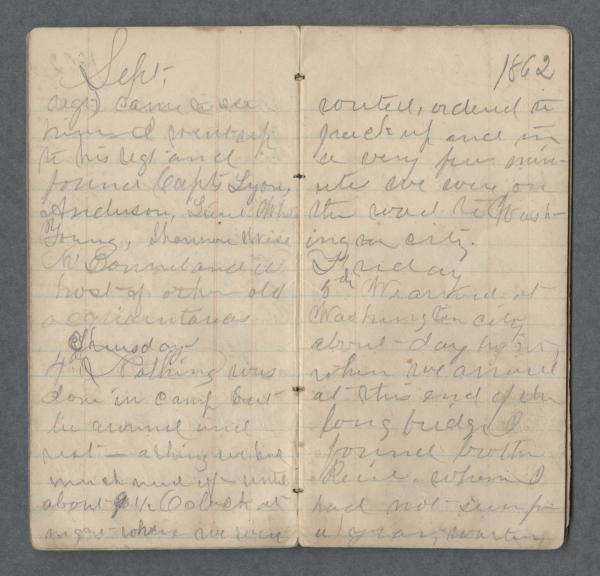 Sept.
regt) came to see
him I went up
to his regt and
found Capts Lyon,
Anderson, Lieut
Young, Shannon Wise
McDonnel and a
host of other old
acquaintances
Thursday
4th Nothing was
done in camp but
lie around and
rest — a thing we have
much need of until
about 9 1/2 Oclock at
night when we were
1862
routed, orderd to
pack up and in
a very few min-
utes we were on
the road to Wash-
ington city.
Friday
5th We arrived at
Washington city
about day light,
when we arrived
at this end of the
long bridge I
found brother
whom I
had not seen for
a year, waiting